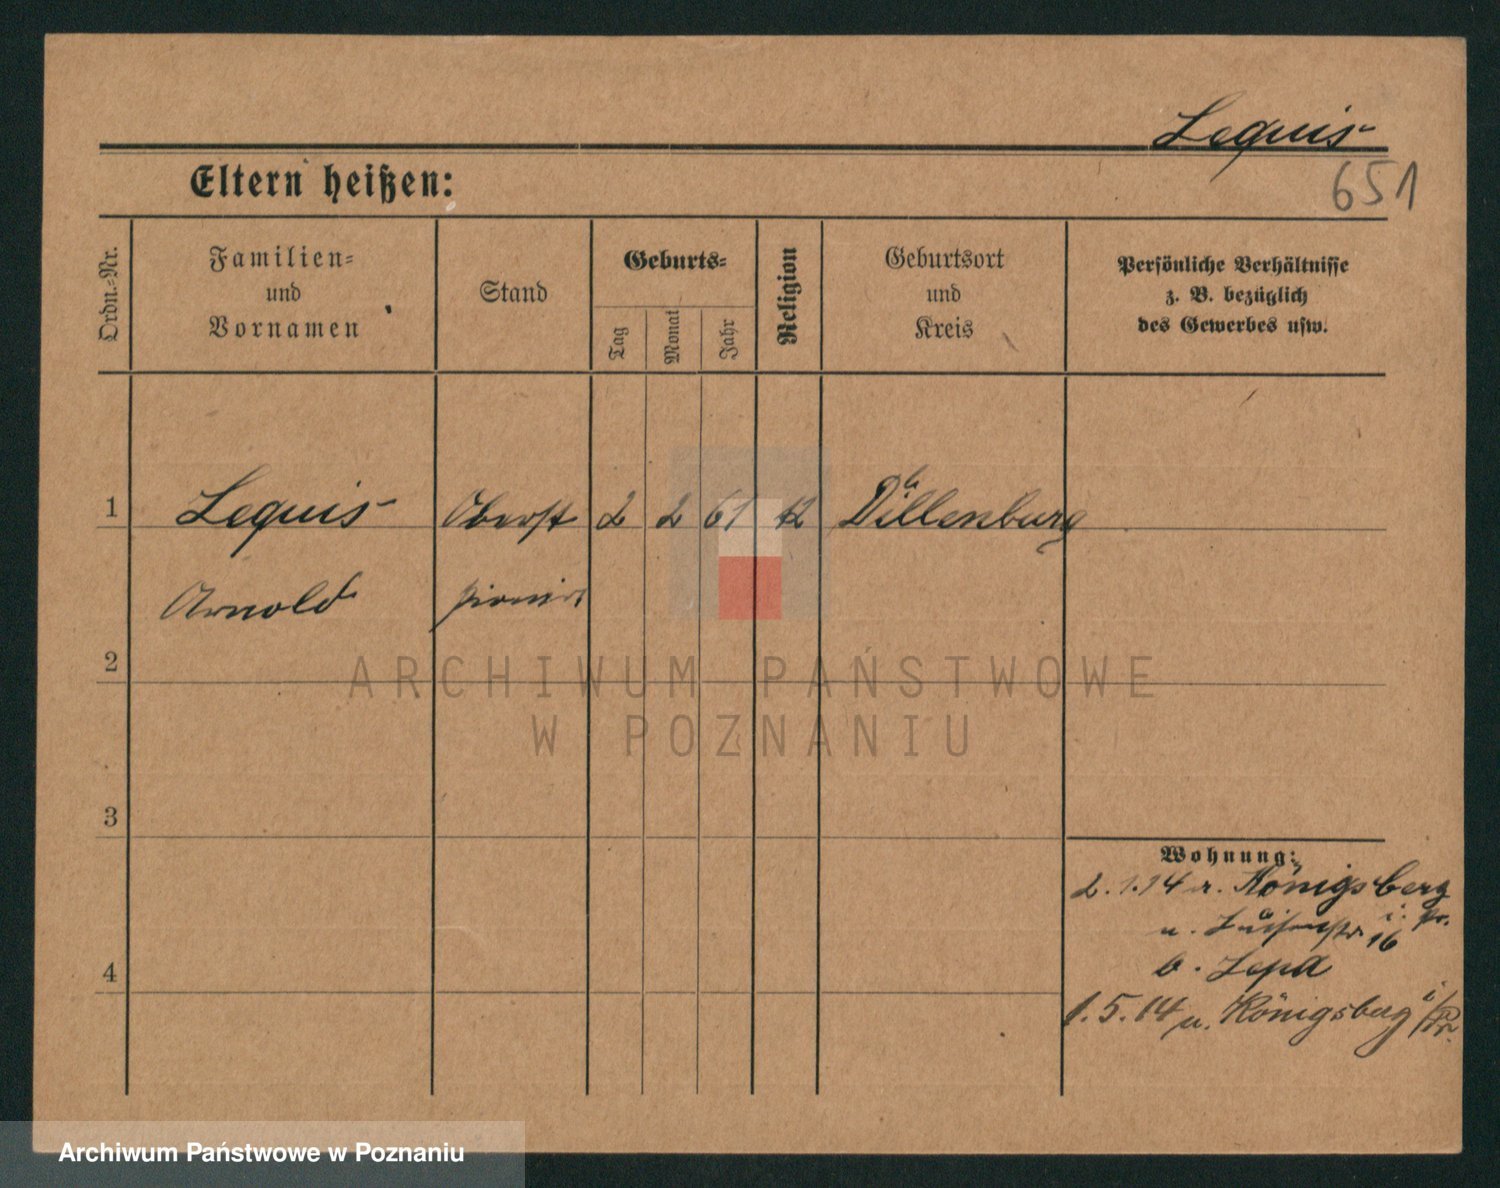 Lequis
651
Eltern heißen:
Ordn.-Nr.
Familien-
und
Vornamen
Stand
Geburts-
Tag
Monat
Jahr
Religion
Geburtsort
und
Kreis
Persönliche Verhältnisse
z. B. bezüglich
des Gewerbes usw.
1
Lequis Oberst 2 2 61 Dillenburg
Arnold
2
ARCHIWUM PAŃSTWOWE
W POZNANIU
3
Wohnung:
2.1.14 Königsberg
i. Pr.
16
b.
4
1.5.14 n. Königsberg i/Pr.
Archiwum Państwowe w Poznaniu